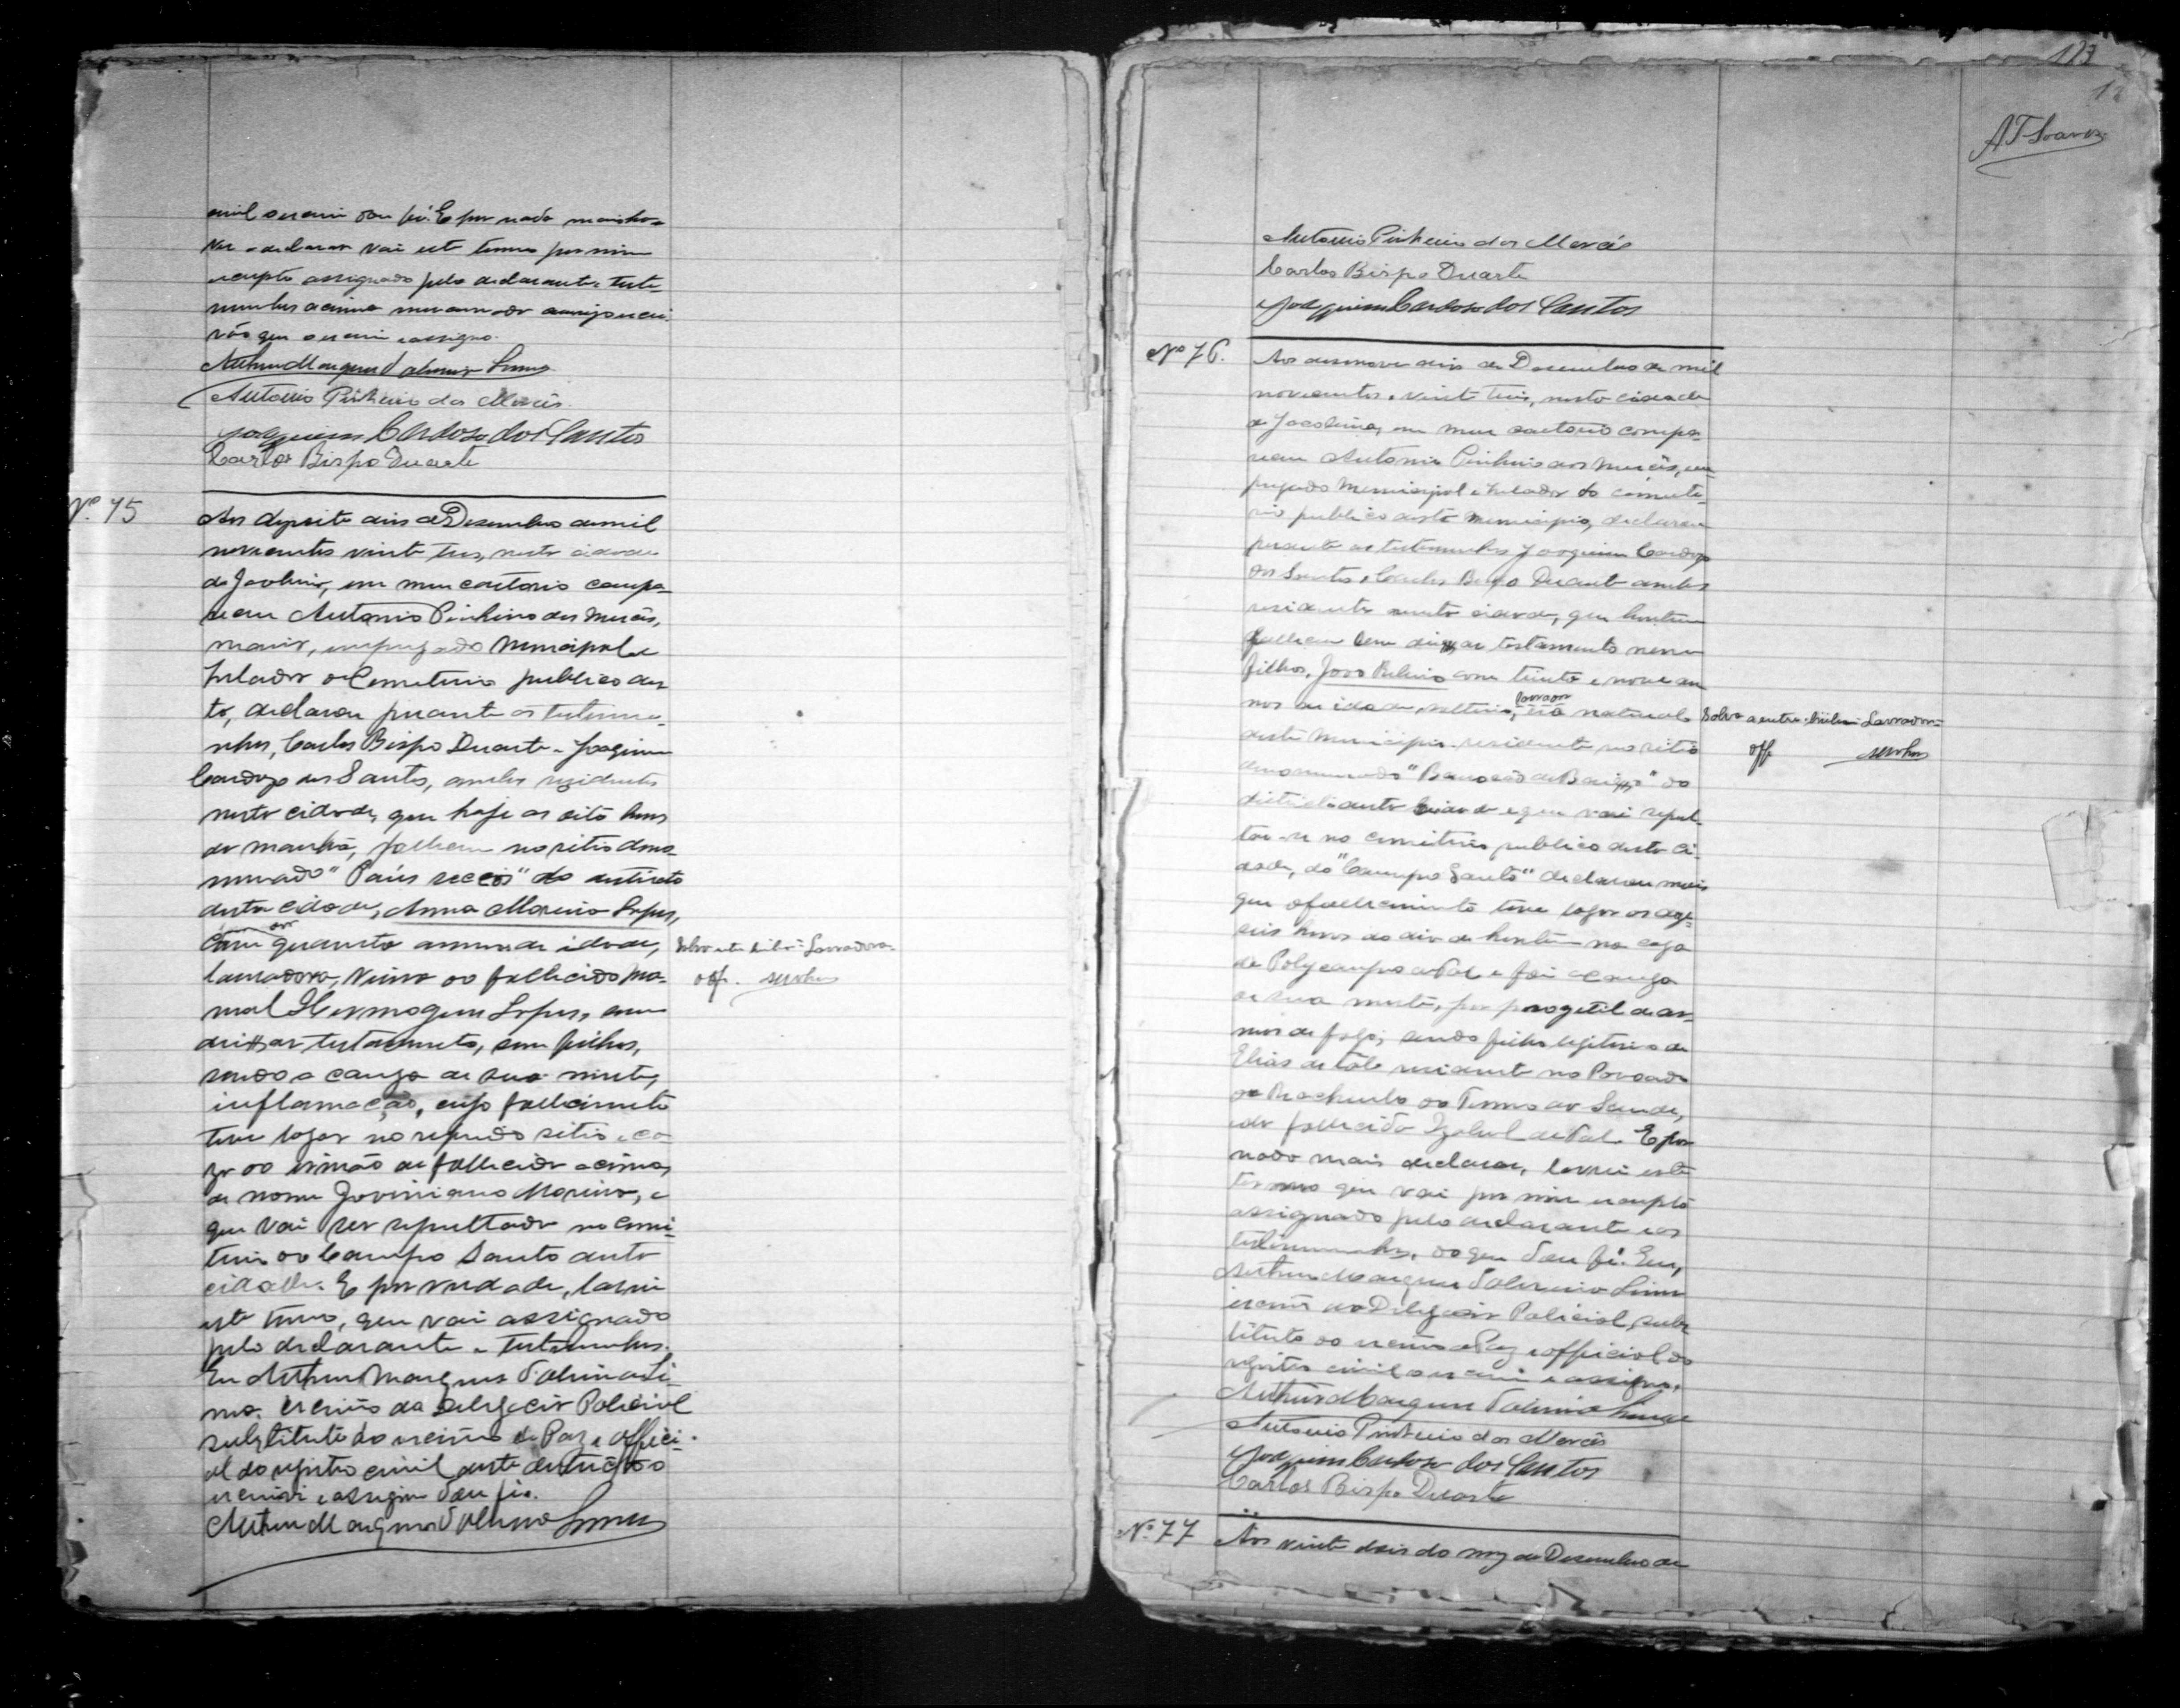 civil escrevi dou fé. E por nada mais ha-
ver a declarar vai este termo por mim
escripto assignado pelo declarante e teste-
munhas acima
vão que escrevi e assigno.
Arthur Marques Lima
Antonio Pinheiro das Mercês.
Joaquim Cardoso dos Santos
Carlos Bispo Duarte
Nº 75
Aos desoito dias de Desembro de mil
novecentos vinte tres, nesta cidade
de Jacobina, em meu cartorio compa-
receu Antonio Pinheiro das Mercês,
maior, empregado Municipal e
Zelador do Cemeterio publico des-
ta, declarou perante as testemu-
nhas, Carlos Bispo Duarte e Joaquim
Cardozo dos Santos, ambos residentes
nesta cidade, que hoje as oito horas
da manhã, falleceu no sitio deno-
minado "Paús seccos" do districto
desta cidade, Anna Moreira Lopes,
com quarenta annos de idade,
lavradora, Viuva do fallecido Ma-
noel Hermogens Lopes, sem
deixar testamento, sem filhos,
sendo a causa de sua morte,
inflamação, cujo fallecimento
teve logar no referido sitio e ca-
za do irmão da fallecida acima,
de nome Joviniano Moreira, e
que vai ser sepultada no cemi-
terio do Campo Santo desta
cidade. E por verdade, lavrei
este termo, que vai assignado
pelo declarante e testemunhas.
Eu Arthur Marques Li-
ma. escrivão da Delegacia Policial
substituto do escrivão de Paz e offici-
al do registro civil deste districto o
escrevi e assigno dou fé.
Arthur Marques Lima
Lavradora
off.
113
12
A T Soares
Antonio Pinheiro das Mercês
Carlos Bispo Duarte
Joaquim Cardoso dos Santos
Nº 76.
Aos desenove dias de Desembro de mil
novecentos e vinte treis, nesta cidade
de Jacobina, em meu cartorio compa-
receu Antonio Pinheiro das Mercês, em-
pregado Municipal e Zelador do cemite-
rio publico deste Municipio, declarou
perante as testemunhas Joaquim Cardozo
dos Santos e Carlos Bispo Duarte ambos
residentes nesta cidade, que hontem
falleceu sem deixar testamento nem
filhos, João com trinta e nove an-
nos de idade, solteiro, natural
lavrador
deste Municipio residente no sitio
denominado do
districto desta cidade e que vai sepul-
tar-se no cemiterio publico desta ci-
dade, do "Campo Santo" declarou mais
que o fallecimento teve logar as deze-
seis horas do dia de hontem na caza
de Polycarpo de Tal e foi a causa
de sua morte, por progetil de ar-
ma de fogo, sendo filho legitimo de
Elias de tal residente no Povoado
do Riachuelo do Termo da Saude,
e da fallecida Izabel de Tal. E por
nada mais declarar, lavrei este
termo que vai por mim escripto
assignado pelo declarante e as
testemunhas, do que dou fé. Eu,
Arthur Marques Lima
escrivão da Delegacia Policial, subs-
tituto do escrivão de Paz e official do
registro civil o escrevi e assigno.
Arthur Marques Lima
Antonio Pinheiro das Mercês
Joaquim Cardoso dos Santos
Carlos Bispo Duarte
Lavrador
off
Nº 77
Aos vinte dois do mez de Desembro de